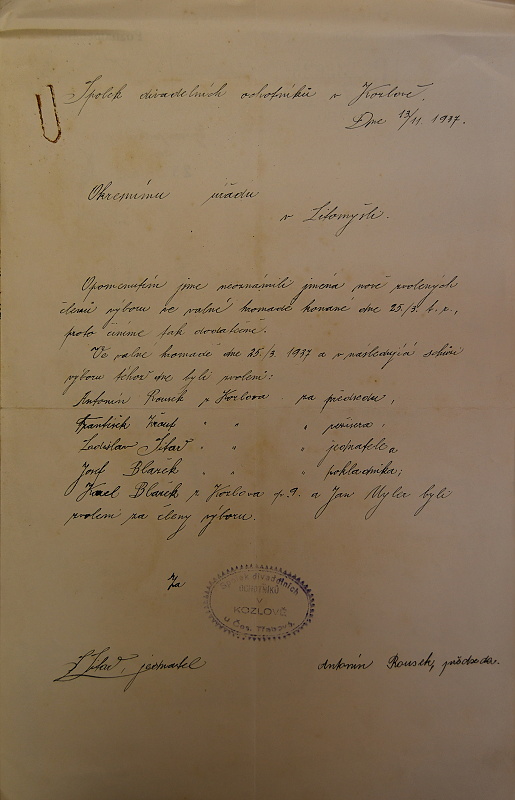 Spolek divadelních ochotníků v Kozlově.
Dne 13/11 1937.
Okresnímu úřadu
v Litomyšli.
Opomenutím jsme neoznámili jména nově zvolených
členů výboru ve valné hromadě konané dne 25./3. t. r.,
proto činíme tak dodatečně.
Ve valné hromadě dne 25./3. 1937 a v následující schůzi
výboru téhož dne byli zvoleni:
Antonín Rousek z Kozlova za předsedu,
František " " " "
Ladislav " " " jednatele a
Josef Blažek " " " pokladníka;
Karel Blažek z Kozlova č.p. 9. a Jan Myler byli
zvoleni za členy výboru.
Za
Spolek divadelních
ochotníků
v
KOZLOVĚ
u Čes. Třebové.
jednatel
Antonín Rousek, předseda.